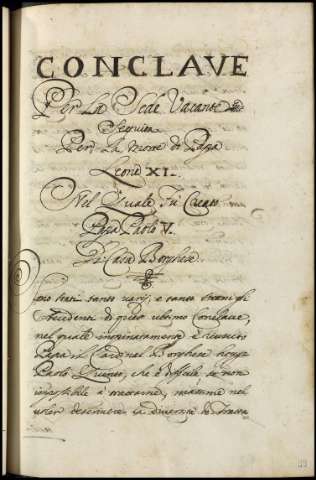 CONCLAVE
Per La Sede Vacante
Seguita
Per La Morte di Papa
Leone XI.
Nel Quale Fù Creato
Papa Paolo V.
Di Casa Borghese.
Sono stati tanto varij, e tanto strani gli
Accidenti di questo ultimo Conclave,
nel quale inopinatamente è riuscito
Papa il Cardinal Borghese hoggi
Paolo Quinto, che è difficile se non
impossibile à narrarne, massime nel
voler descrivere la diversità di